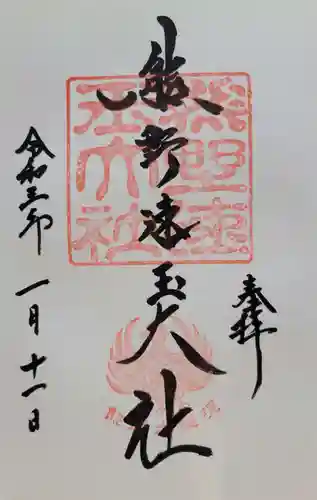 奉拝
熊野速玉大社
令和三卯 一月十一日
熊野速
玉大社